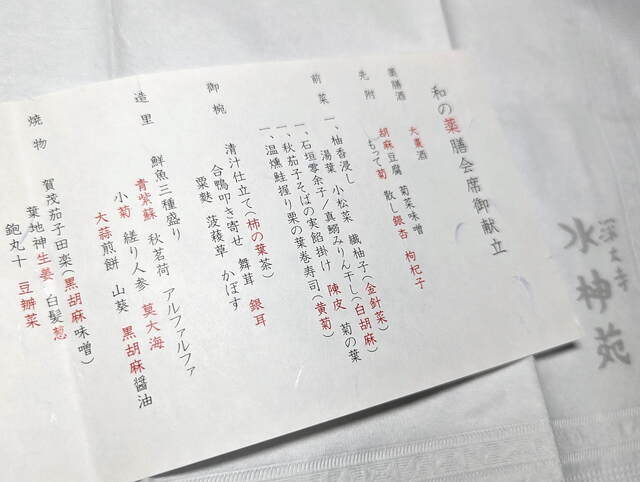 和の薬膳会席御献立
薬膳酒
大棗酒
先附
胡麻豆腐 菊菜味噌
もって菊 散し銀杏 枸杞子
前菜
一、柚香浸し 小松菜 繊柚子(金針菜)
湯葉
一、石垣零余子/真鰯みりん干し(白胡麻)
一、秋茄子そばの実餡掛け 陳皮 菊の葉
一、温燻鮭握り栗の葉巻寿司(黄菊)
御椀
清汁仕立て(柿の葉茶)
合鴨叩き寄せ 舞茸 銀耳
粟麩 菠薐草 かぼす
造里
鮮魚三種盛り アルファルファ
青紫蘇 秋茗荷 莫大海
小菊 縒り人参 黒胡麻醤油
大蒜煎餅 山葵
焼物
賀茂茄子田楽(黒胡麻味噌)
葉地神生姜 白髪葱
鮑丸十 豆瓣菜
深大寺
水神苑